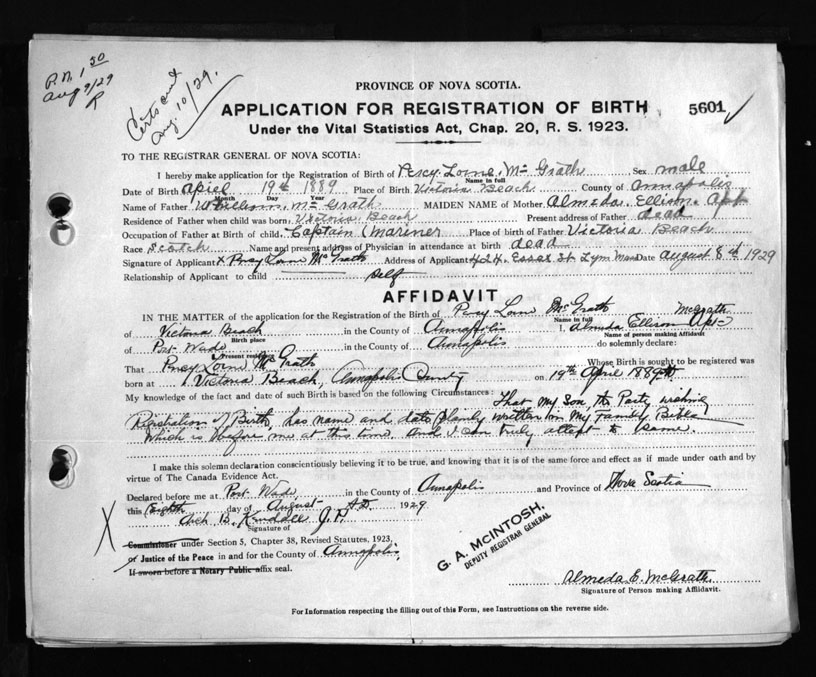 P.N. 1 50
Aug 9/29
R
Certs cent
Aug. 10/29.
PROVINCE OF NOVA SCOTIA.
APPLICATION FOR REGISTRATION OF BIRTH 5601
Under the Vital Statistics Act, Chap. 20, R. S. 1923.
TO THE REGISTRAR GENERAL OF NOVA SCOTIA:
I hereby make application for the Registration of Birth of Percy Lorne Mc Grath Sex male
Name in full
Date of Birth April 19th 1889 Place of Birth Victoria Beach County of Annapolis
Month Day Year
Name of Father William Mc Grath MAIDEN NAME of Mother Almeda Ellison Apt
Residence of Father when child was born, Victoria Beach Present address of Father dead
Occupation of Father at Birth of child, Captain (Mariner Place of birth of Father Victoria Beach
Race Scotch Name and present address of Physician in attendance at birth dead
Signature of Applicant x Percy Lorne McGrath Address of Applicant 424 Essex St Lyn Mass Date August 8th 1929
Relationship of Applicant to child Self
AFFIDAVIT
IN THE MATTER of the application for the Registration of the Birth of Percy Lorne McGrath McGrath
Name in full
of Victoria Beach in the County of Annapolis I, Almeda Ellison Apt
Birth place Name of person making Affidavit
of Port Wade in the County of Annapolis do solemnly declare:
Present residence
That Percy Lorne McGrath Whose Birth is sought to be registered was
born at Victoria Beach, Annapolis County on 19th April 1889
My knowledge of the fact and date of such Birth is based on the following Circumstances: That my son, the Party wishing
Registration of Birth, has name and date plainly written in my Family Bible
Which is before me at this time. And I can truly attest to same.
I make this solemn declaration conscientiously believing it to be true, and knowing that it is of the same force and effect as if made under oath and by
virtue of The Canada Evidence Act.
Declared before me at Port Wade in the County of Annapolis and Province of Nova Scotia
this Eighth day of August A.D. 1929
Arch B. Kendall J.P.
Signature of
Commissioner under Section 5, Chapter 38, Revised Statutes, 1923,
or Justice of the Peace in and for the County of Annapolis,
If sworn before a Notary Public affix seal.
G. A. McINTOSH,
DEPUTY REGISTRAR GENERAL
Almeda E. McGrath
Signature of Person making Affidavit.
For Information respecting the filling out of this Form, see Instructions on the reverse side.